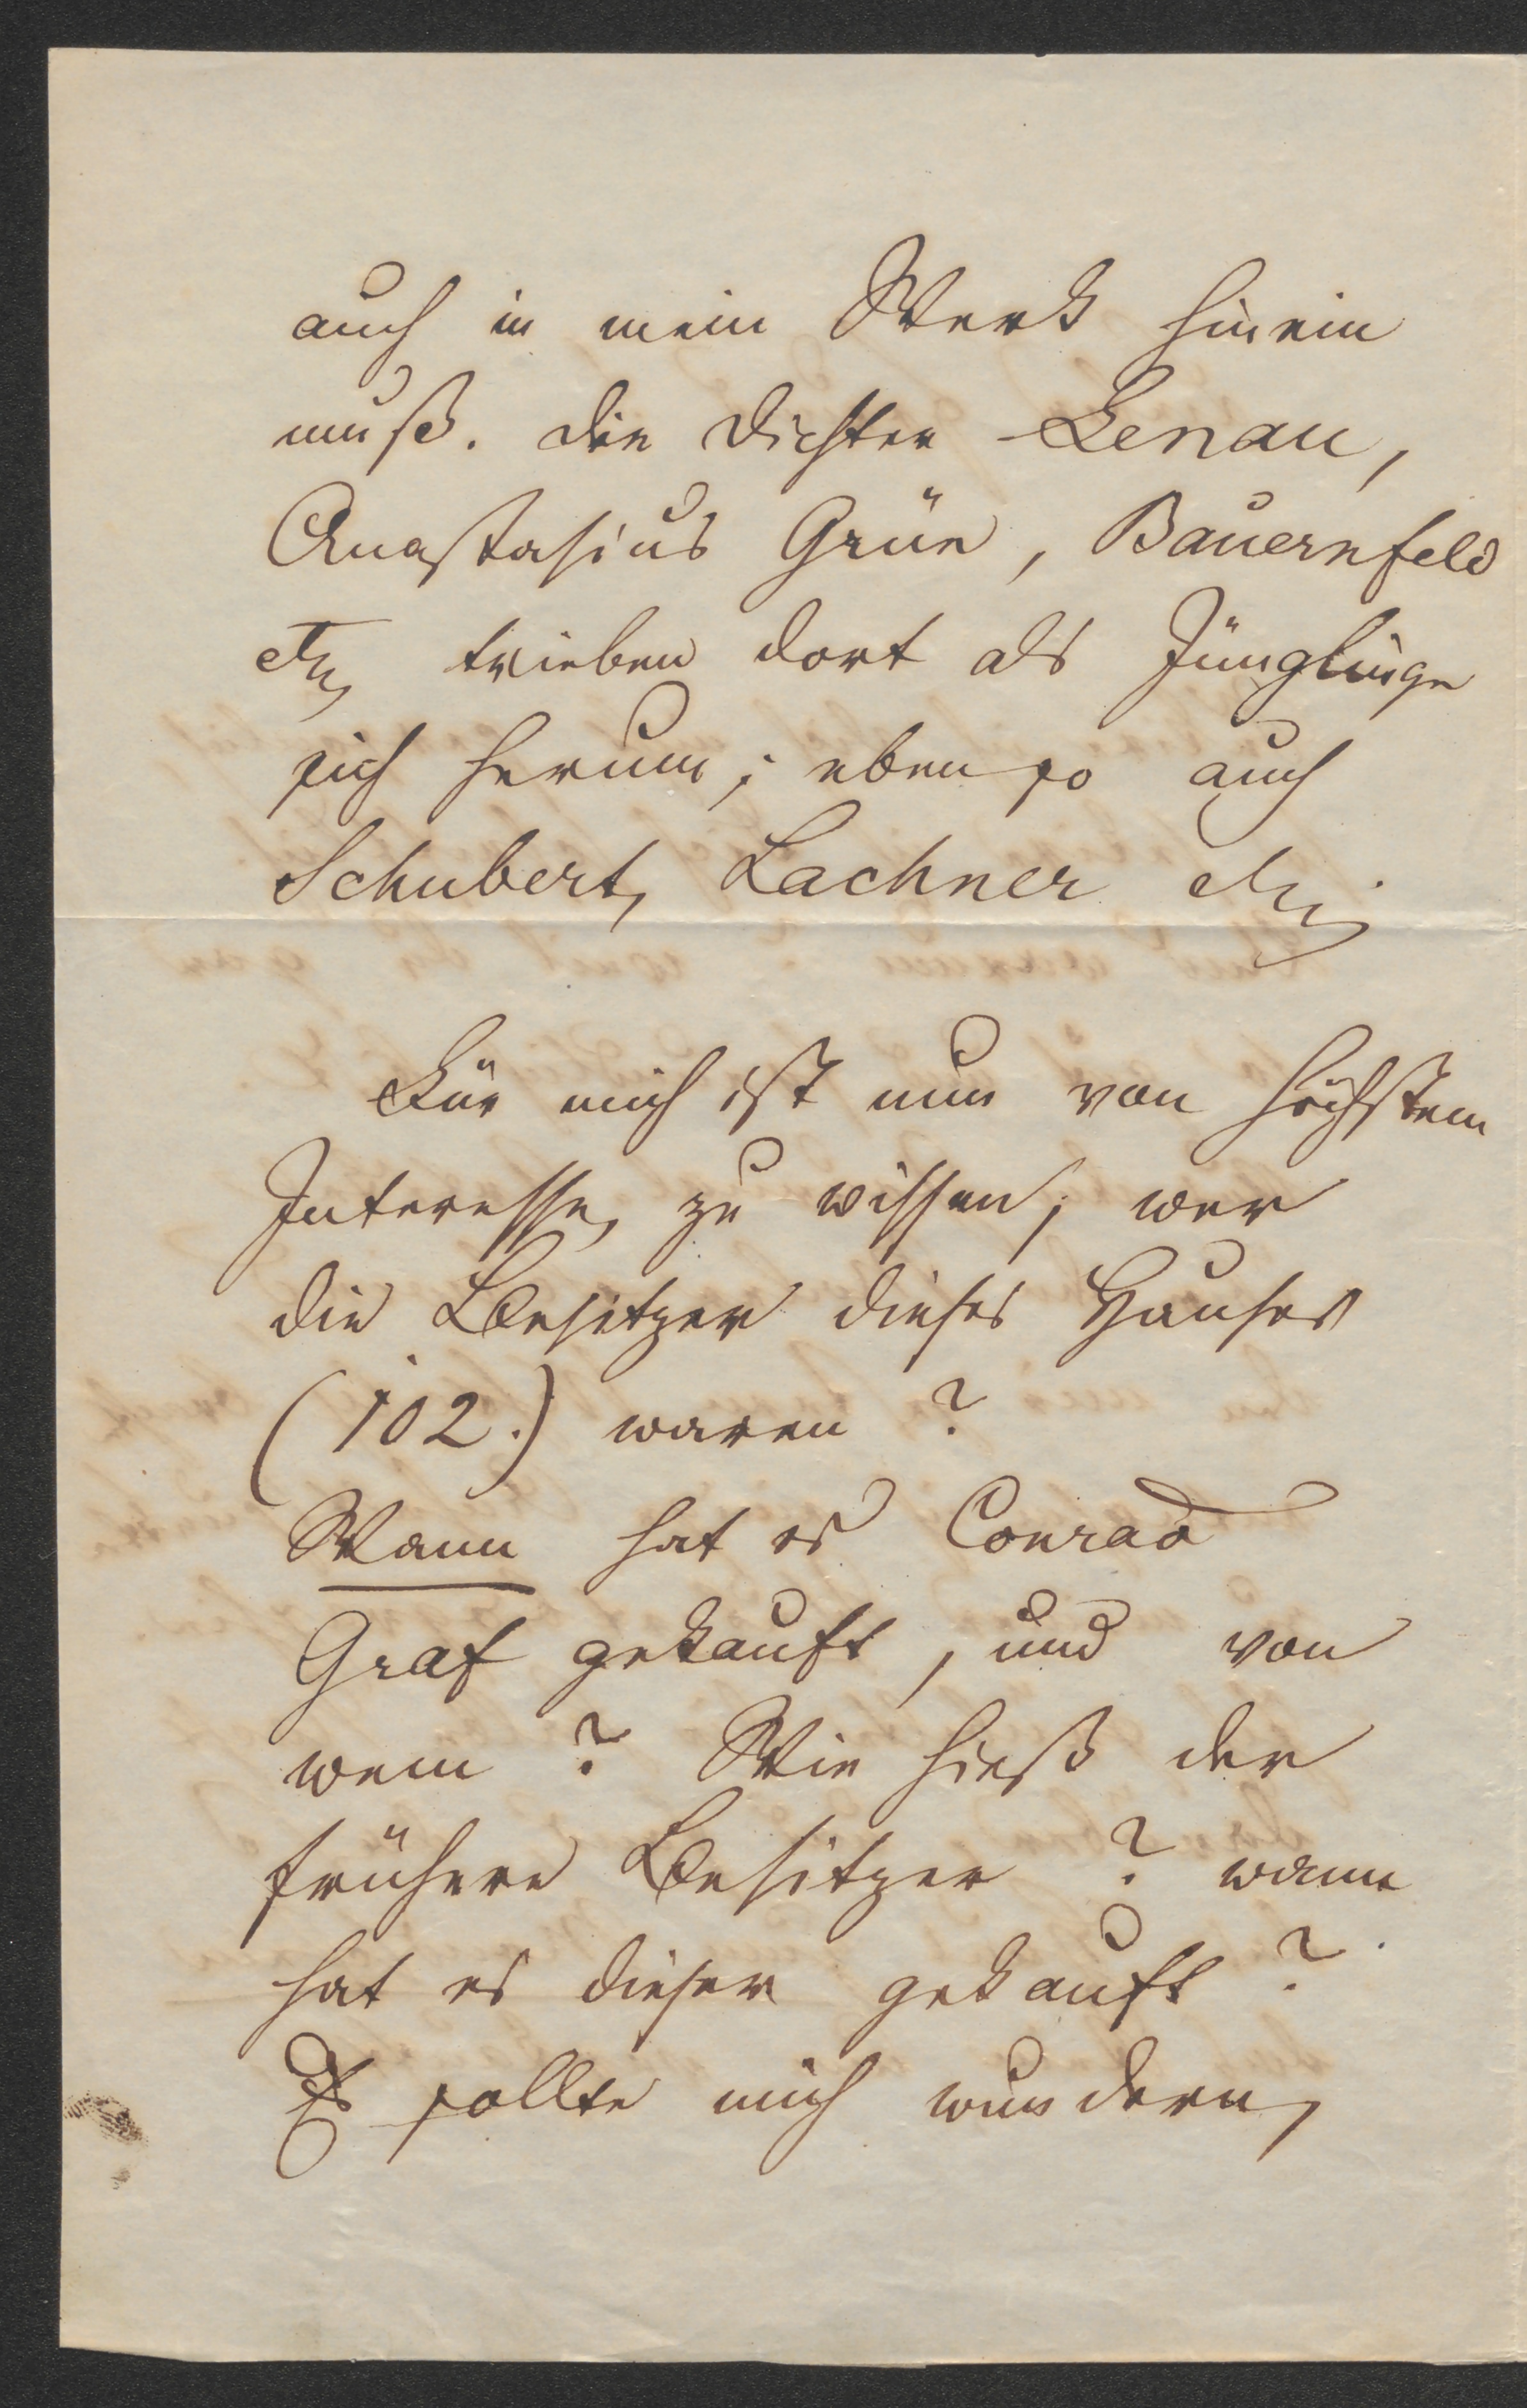 auch in mein Werk hinein
muß. Die Dichter Lenau,
Anastasius Grün, Bauernfeld
etc, trieben dort als Jünglinge
sich herum; eben so auch
Schubert, Lachner etc.
Für mich ist nun von höchstem
Interesse, zu wissen, wer
die Besitzer dieses Hauses
(102.) waren?
Wann hat es Conrad
Graf gekauft, und von
wem? Wie hieß der
frühere Besitzer? wann
hat es dieser gekauft?
Es sollte mich wundern,